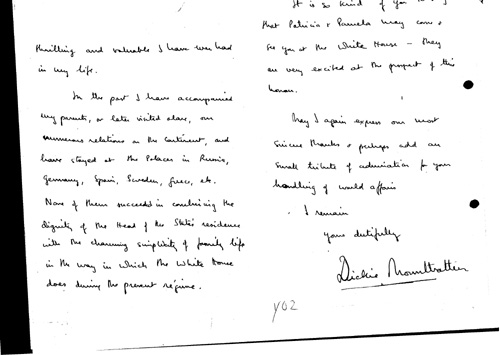 thrilling and valuable I have ever had
in my life.
In the past I have accompanied
my parents, or later visited alone, our
numerous relations on the Continent, and
have stayed at the Palaces in Russia,
Germany, Spain, Sweden, Greece, etc.
None of them succeed in combining the
dignity of the Head of the State's residence
with the charming simplicity of family life
in the way in which the White House
does during the present régime.
It is so kind of you to
that Patricia & Pamela may come &
see you at the White House – they
are very excited at the prospect of this
honour.
May I again express our most
sincere thanks & perhaps add our
small tribute of admiration for your
handling of world affairs
I remain
yours dutifully
Dickie Mountbatten
Y02